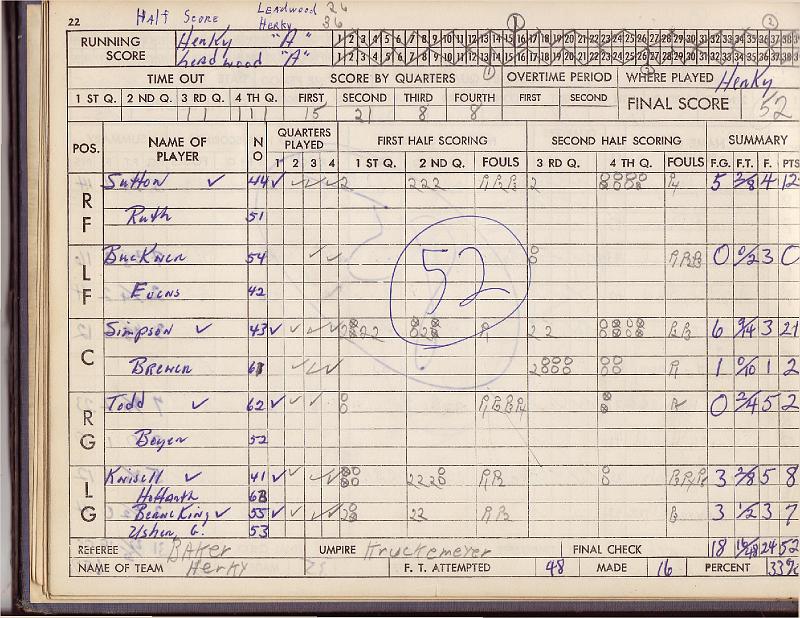 22 Half Score Leadwood 26
Herky 36
RUNNING SCORE
Herky "A" 1 2 3 4 5 6 7 8 9 10 11 12 13 14 15 16 17 18 19 20 21 22 23 24 25 26 27 28 29 30 31 32 33 34 35 36 37 38
Leadwood "A" 1 2 3 4 5 6 7 8 9 10 11 12 13 14 15 16 17 18 19 20 21 22 23 24 25 26 27 28 29 30 31 32 33 34 35 36 37 38
TIME OUT SCORE BY QUARTERS OVERTIME PERIOD WHERE PLAYED Herky
1 ST Q. 2 ND Q. 3 RD Q. 4 TH Q. FIRST SECOND THIRD FOURTH FIRST SECOND FINAL SCORE 52
15 21 8 8
POS. NAME OF PLAYER NO QUARTERS PLAYED FIRST HALF SCORING SECOND HALF SCORING SUMMARY
1 2 3 4 1 ST Q. 2 ND Q. FOULS 3 RD Q. 4 TH Q. FOULS F.G. F.T. F. PTS
RF Sutton 44 2 222 2 5 3/8 4 12
Ruth 51
LF Buckner 54 0 0/2 3 0
Evens 42
52
C Simpson 43 2 2 6 9/14 3 21
Brewer 61 1 0/10 1 2
RG Todd 62 0 2/4 5 2
Boyer 52
LG Knisell 41 3 2/8 5 8
Hoffarth 63
Beancking 55 22 3 1/2 3 7
Usher G. 53
REFEREE Baker UMPIRE Kruckemeyer FINAL CHECK 18 16/48 24 52
NAME OF TEAM Herky F. T. ATTEMPTED 48 MADE 16 PERCENT 33%